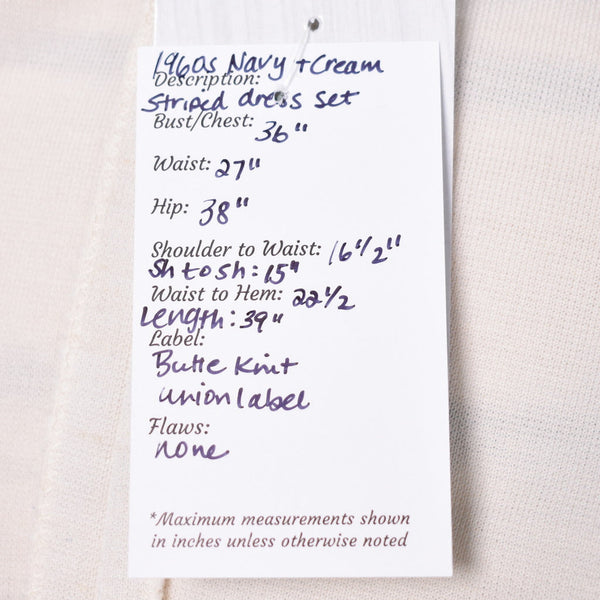 1960s Navy + Cream
Description:
Striped dress set
Bust/Chest: 36"
Waist: 27"
Hip: 38"
Shoulder to Waist: 16 1/2"
Sh to sh: 15"
Waist to Hem: 22 1/2
Length: 39"
Label:
Butte Knit
union label
Flaws:
none
*Maximum measurements shown
in inches unless otherwise noted